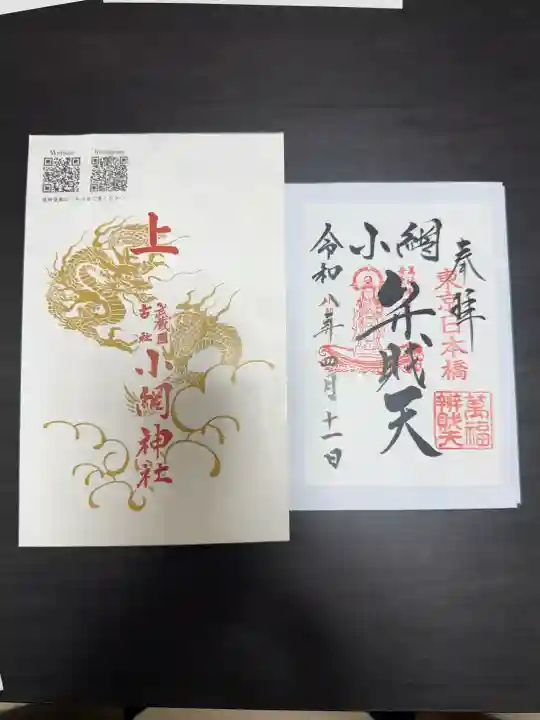 上
武蔵國
古社
小網神社
奉拝
東京日本橋
萬福
辨財天
小網
弁財天
令和八年四月十一日